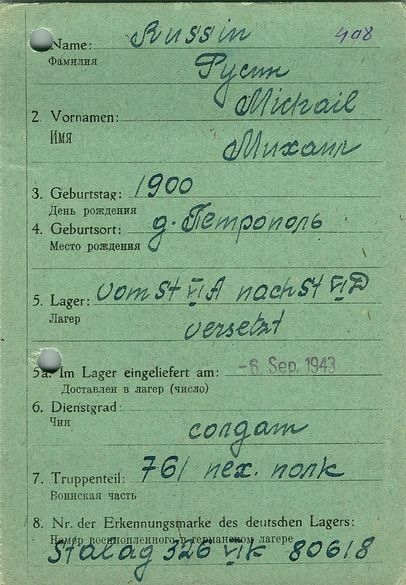 Name: Russin 408
Фамилия Русин
Michail
2. Vornamen:
Имя Михаил
3. Geburtstag: 1900
День рождения
4. Geburtsort: д. Петрополь
Место рождения
5. Lager: vom St VI A nach St VI D
Лагер versetzt
5a. Im Lager eingeliefert am: -6. Sep. 1943
Доставлен в лагер (число)
6. Dienstgrad:
Чин солдат
7. Truppenteil: 761 пех. полк
Воинская часть
8. Nr. der Erkennungsmarke des deutschen Lagers:
Номер военнопленного в германском лагере
Stalag 326 VI K 80618